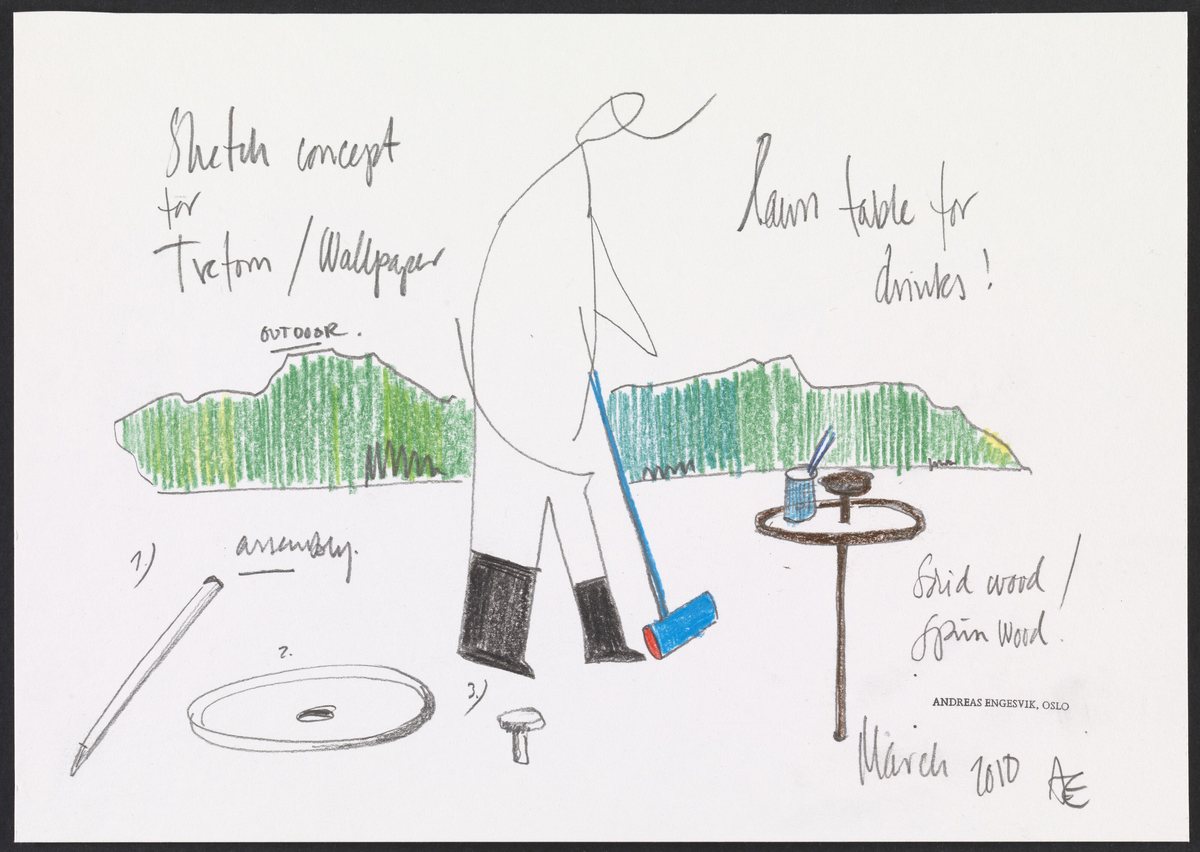 Sketch concept
for
Tretorn / Wallpaper
OUTDOOR.
Lawn table for
drinks!
1.) assembly.
2.
3.)
Solid wood /
Spun wood.
ANDREAS ENGESVIK, OSLO
March 2010 AE